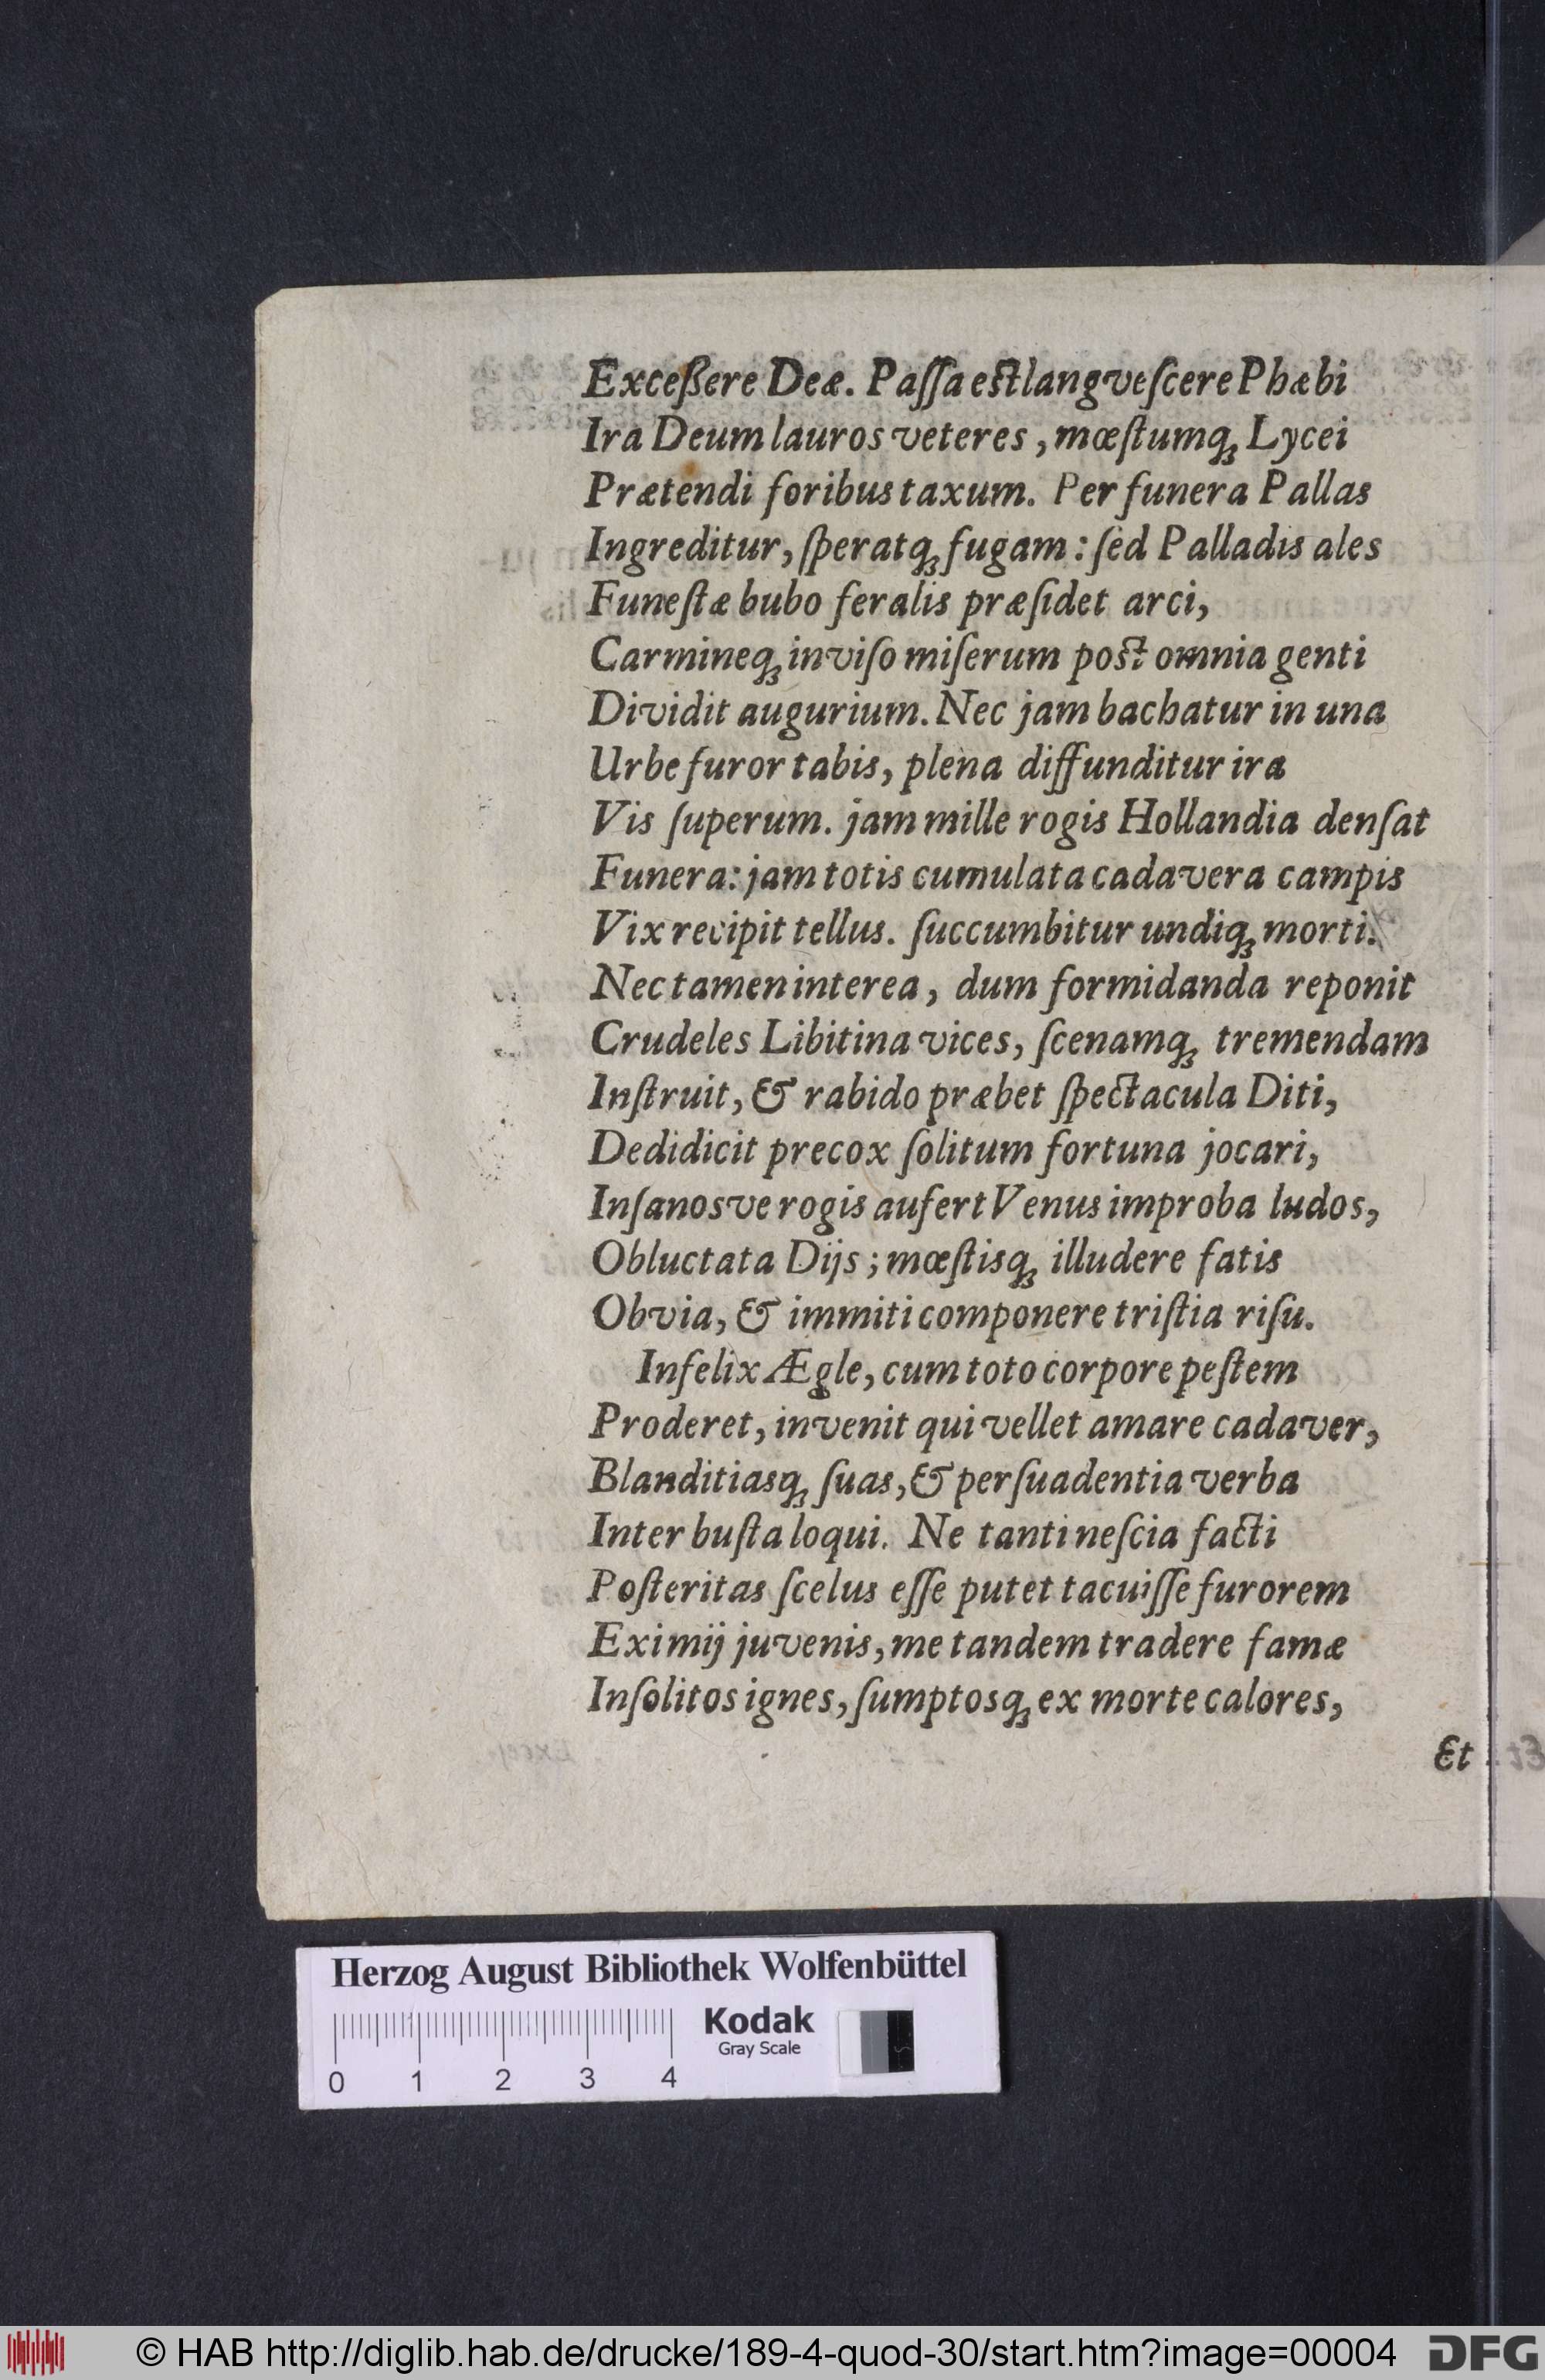 Exceßere Deæ. Paſſa est langveſcere Phæbi
Ira Deum lauros veteres, mœſtumqꝫ Lycei
Prætendi foribus taxum. Per funera Pallas
Ingreditur, ſperatqꝫ fugam: ſed Palladis ales
Funeſtæ bubo feralis præſidet arci,
Carmineqꝫ inviſo miſerum post omnia genti
Dividit augurium. Nec jam bachatur in una
Urbe furor tabis, plena diffunditur ira
Vis ſuperum. jam mille rogis Hollandia denſat
Funera: jam totis cumulata cadavera campis
Vix recipit tellus. ſuccumbitur undiqꝫ morti.
Nec tamen interea, dum formidanda reponit
Crudeles Libitina vices, ſcenamqꝫ tremendam
Inſtruit, & rabido præbet ſpectacula Diti,
Dedidicit precox ſolitum fortuna jocari,
Inſanosve rogis aufert Venus improba ludos,
Obluctata Dijs; mœſtisqꝫ illudere fatis
Obvia, & immiti componere triſtia riſu.
Infelix Ægle, cum toto corpore peſtem
Proderet, invenit qui vellet amare cadaver,
Blanditiasqꝫ ſuas, & perſuadentia verba
Inter buſta loqui. Ne tanti neſcia facti
Poſteritas ſcelus eſſe putet tacuiſſe furorem
Eximij juvenis, me tandem tradere famæ
Inſolitos ignes, ſumptosqꝫ ex morte calores,
Et
Herzog August Bibliothek Wolfenbüttel
Kodak
Gray Scale
0 1 2 3 4
© HAB http://diglib.hab.de/drucke/189-4-quod-30/start.htm?image=00004
DFG